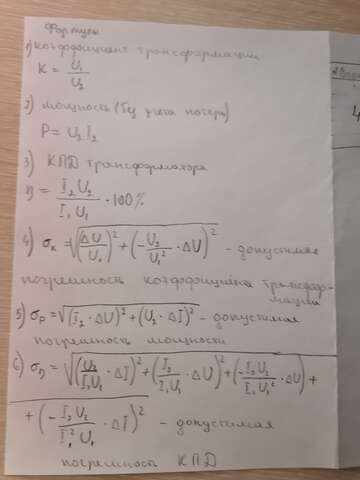 Формулы
1) Коэффициент трансформации
K = U₁/U₂
2) Мощность (без учета потерь)
P = U₂ I₂
3) КПД трансформатора
η = (I₂ U₂)/(I₁ U₁) · 100%
4) σₖ = √((ΔU/U₁)² + (-U₂/U₁² · ΔU)²) - допустимая
погрешность коэффициента трансфор-
мации
5) σₚ = √((I₂ · ΔU)² + (U₂ · ΔI)²) - допустимая
погрешность мощности
6) σ_η = √((U₂/(I₁U₁) · ΔI)² + (I₂/(I₁U₁) · ΔU)² + (-I₂U₂/(I₁U₁²) · ΔU)² +
+ (-I₂U₂/(I₁²U₁) · ΔI)²) - допустимая
погрешность КПД